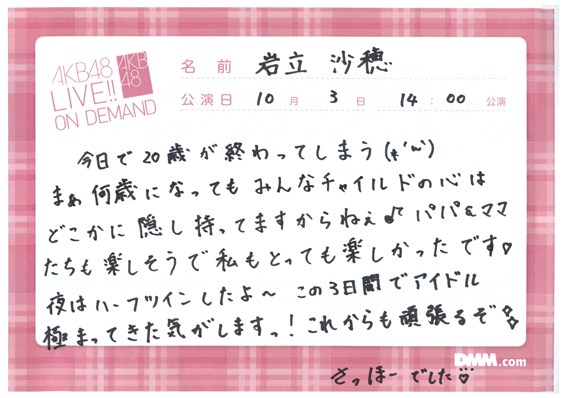 AKB48
LIVE!!
ON DEMAND
AKB
48
名前 岩立 沙穂
公演日 10月 3日 14:00 公演
今日で20歳が終わってしまう(*'~')
まぁ何歳になってもみんなチャイルドの心は
どこかに隠し持ってますからねぇ♪パパ&ママ
たちも楽しそうで私もとっても楽しかったです♡
夜はハーフツインしたよ〜 この3日間でアイドル
極まってきた気がしますっ!これからも頑張るぞ
DMM.com
さっほーでした♡